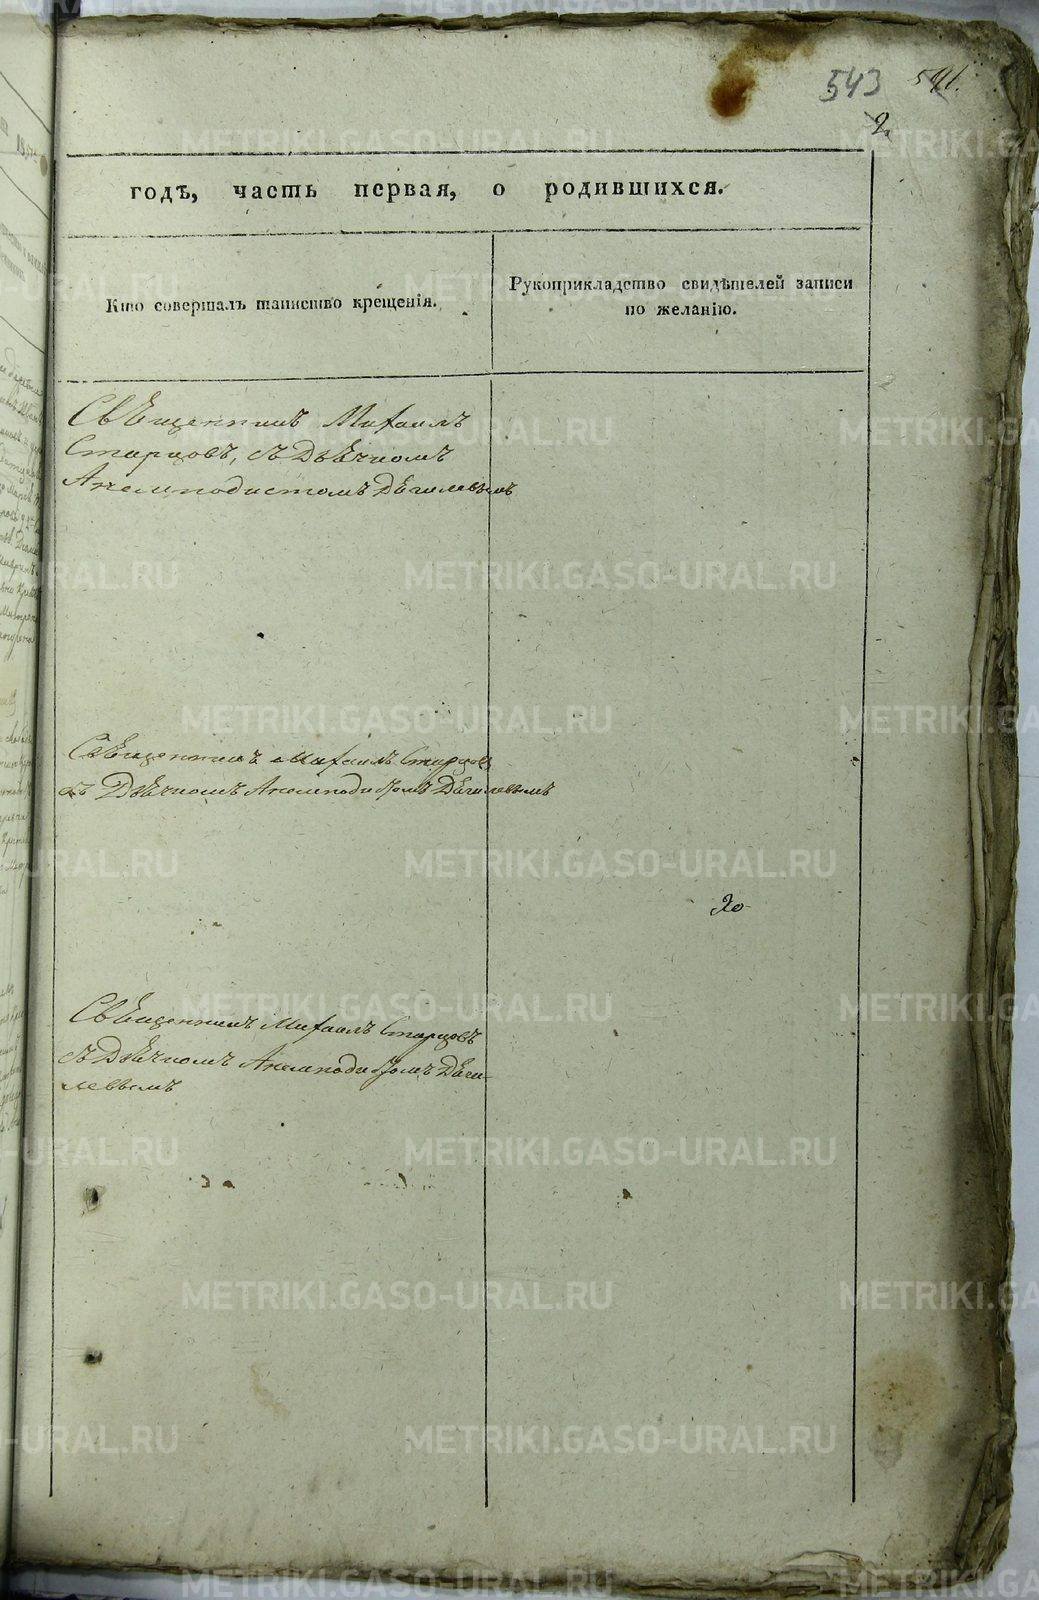 543 541.
2.
годъ, часть первая, о родившихся.
Кто совершалъ таинство крещенія.
Рукоприкладство свидѣтелей записи
по желанію.
Свѣщенникъ Михаилъ
Старцовъ, съ Дьѣчкомъ
Анемподистомъ Дѣгилевымъ
Свѣщенникъ Михаилъ Старцов
съ Дьѣчкомъ Анемподистомъ Дѣгилевымъ
20
Свѣщенникъ Михаилъ Старцовъ
съ Дьѣчкомъ Анемподистомъ Дѣги-
левымъ
METRIKI.GASO-URAL.RU